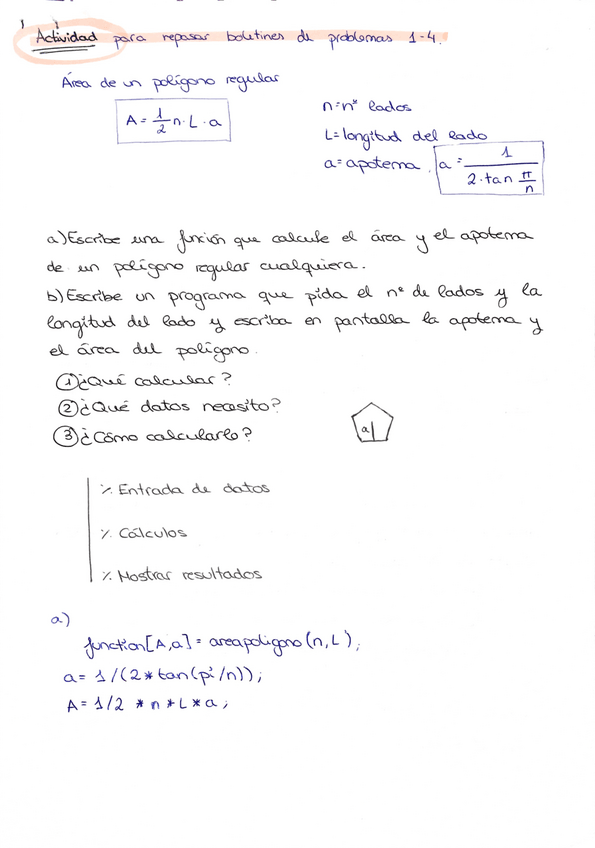 Actividad para repasar boletines de problemas 1-4.
Área de un polígono regular
A = 1/2 n · L · a
n = nº lados
L = longitud del lado
a = apotema, a = 1 / (2 · tan π/n)
a) Escribe una función que calcule el área y el apotema
de un polígono regular cualquiera.
b) Escribe un programa que pida el nº de lados y la
longitud del lado y escriba en pantalla la apotema y
el área del polígono.
① ¿Qué calcular?
② ¿Qué datos necesito?
③ ¿Cómo calcularlo?
a
% Entrada de datos
% Cálculos
% Mostrar resultados
a)
function[A,a] = areapoligono(n,L);
a = 1/(2*tan(pi/n));
A = 1/2 * n * L * a;